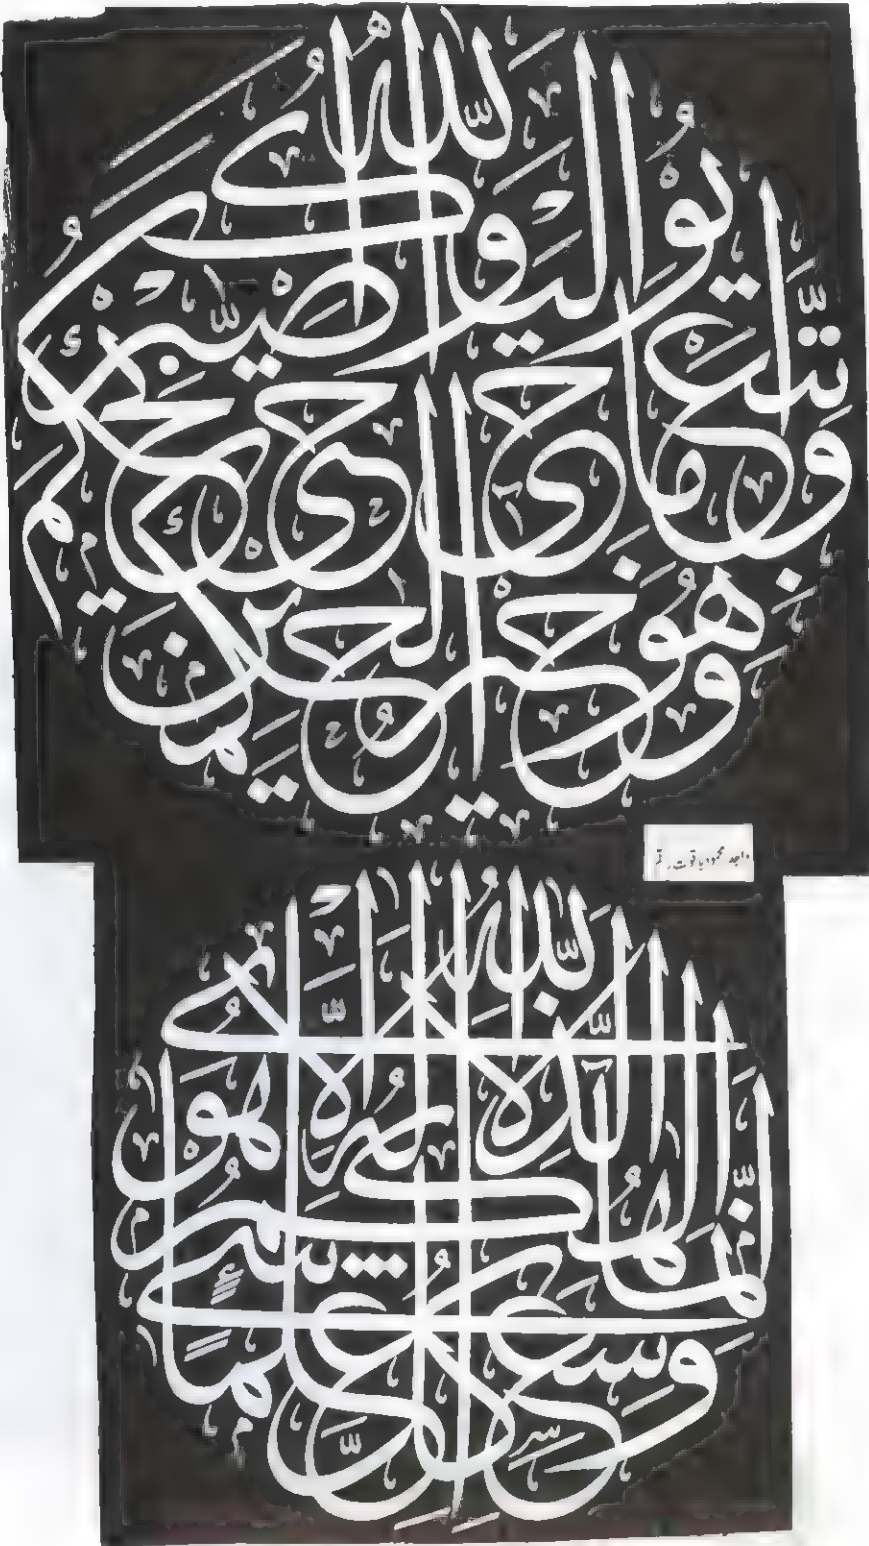 وَاتَّبِعْ مَا يُوحَىٰ إِلَيْكَ وَاصْبِرْ حَتَّىٰ يَحْكُمَ اللَّهُ وَهُوَ خَيْرُ الْحَاكِمِينَ
واجد محمود یاقوت رقم
إِنَّمَا إِلَٰهُكُمُ اللَّهُ الَّذِي لَا إِلَٰهَ إِلَّا هُوَ وَسِعَ كُلَّ شَيْءٍ عِلْمًا